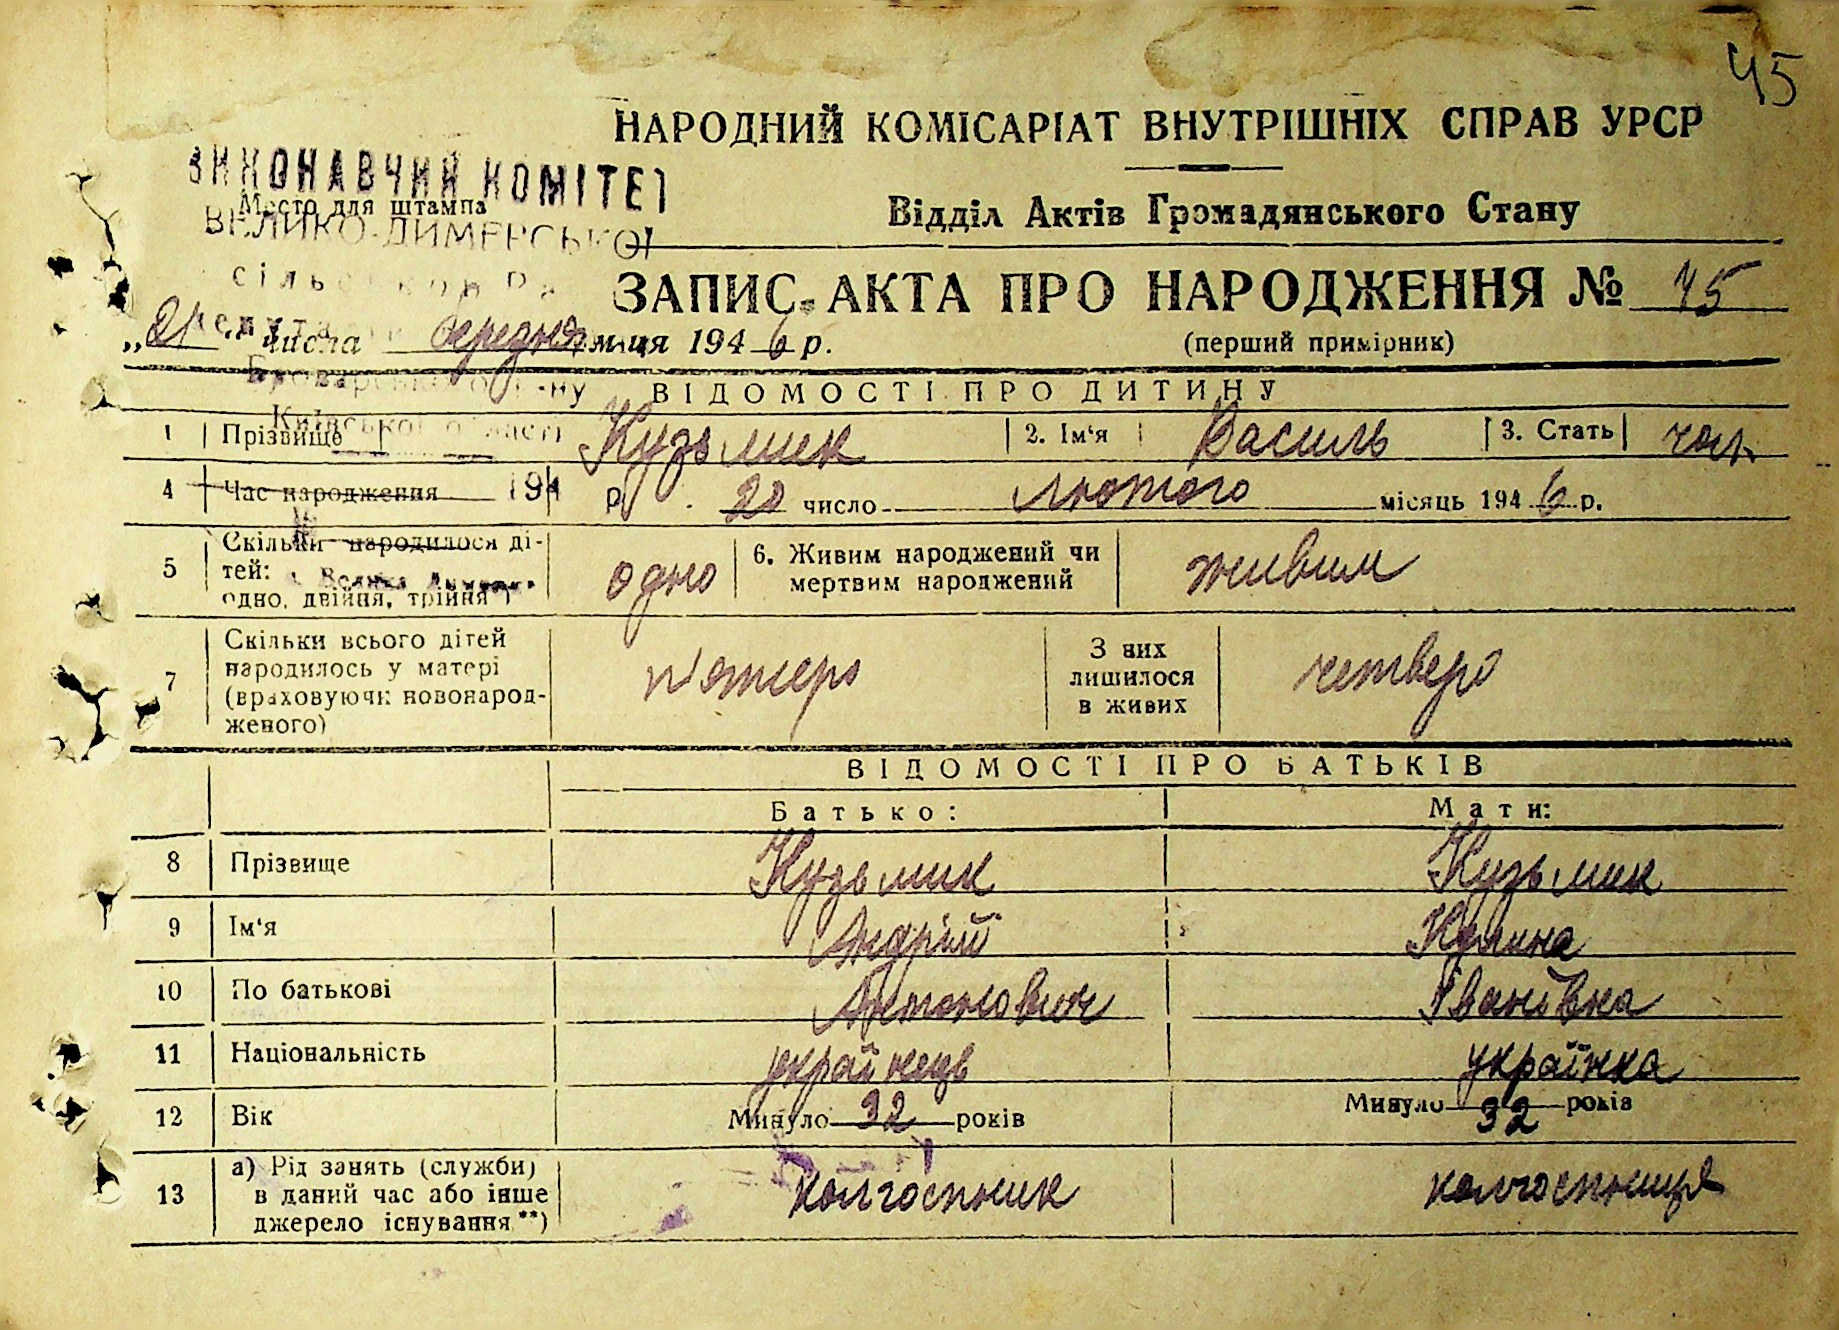 45
НАРОДНИЙ КОМІСАРІАТ ВНУТРІШНІХ СПРАВ УРСР
ВИКОНАВЧИЙ КОМІТЕТ
Место для штампа
Відділ Актів Громадянського Стану
ВЕЛИКО-ДИМЕРСЬКОЇ
ЗАПИС АКТА ПРО НАРОДЖЕННЯ № 45
„21“ числа березня м-ця 1946 р.
(перший примірник)
Броварського р-ну
ВІДОМОСТІ ПРО ДИТИНУ
Київської області
1 Прізвище Кузьмик 2. Ім'я Василь 3. Стать чол.
4 Час народження 194 р. 20 число лютого місяць 1946 р.
5 Скільки народилося дітей: одно, двійня, трійня*) одно 6. Живим народжений чи мертвим народжений живим
7 Скільки всього дітей народилось у матері (враховуючи новонародженого) п'ятеро З них лишилося в живих четверо
ВІДОМОСТІ ПРО БАТЬКІВ
Батько: Мати:
8 Прізвище Кузьмик Кузьмик
9 Ім'я Андрій Кулина
10 По батькові Антонович Іванівна
11 Національність українець українка
12 Вік Минуло 32 років Минуло 32 років
13 а) Рід занять (служби) в даний час або інше джерело існування**) колгоспник колгоспниця